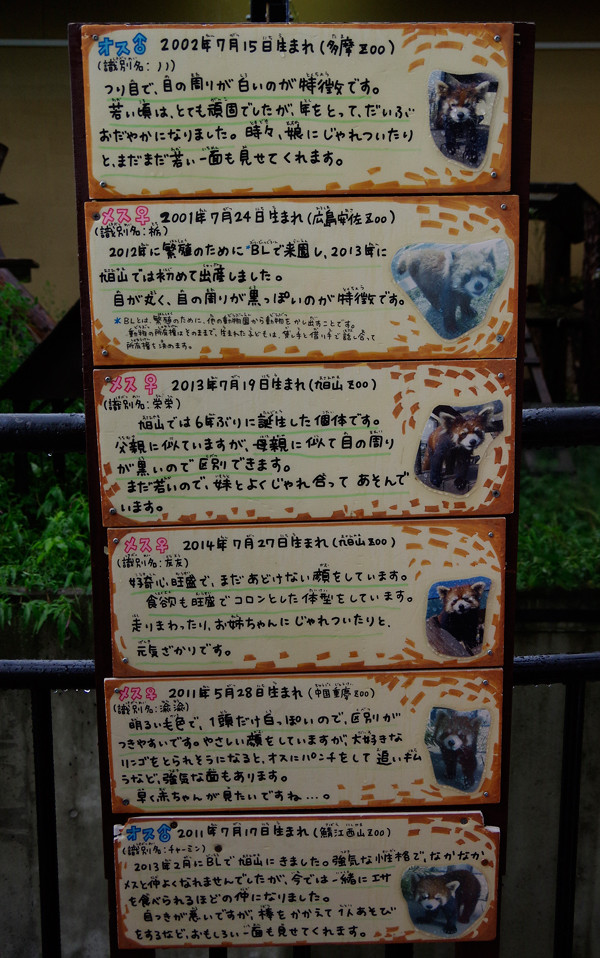 オス♂ 2002年7月15日生まれ(多摩ZOO)
(識別名:ノノ)
つり目で、目の周りが白いのが特徴です。
若い頃は、とても頑固でしたが、年をとって、だいぶ
おだやかになりました。時々、娘にじゃれついたり
と、まだまだ若い一面も見せてくれます。
メス♀ 2001年7月24日生まれ(広島安佐ZOO)
(識別名:栃)
2012年に繁殖のために*BLで来園し、2013年に
旭山では初めて出産しました。
目が丸く、目の周りが黒っぽいのが特徴です。
*BLとは、繁殖のために、他の動物園から動物をかし出すことです。
動物の所有権はそのままで、産まれた子どもは、貸し手と借り手で話し合って
所有権を決めます。
メス♀ 2013年7月19日生まれ(旭山ZOO)
(識別名:栄栄)
旭山では6年ぶりに誕生した個体です。
父親に似ていますが、母親に似て目の周り
が黒いので区別できます。
まだ若いので、妹とよくじゃれ合ってあそんで
います。
メス♀ 2014年7月27日生まれ(旭山ZOO)
(識別名:友友)
好奇心旺盛で、まだあどけない顔をしています。
食欲も旺盛でコロンとした体型をしています。
走りまわったり、お姉ちゃんにじゃれついたりと、
元気ざかりです。
メス♀ 2011年5月28日生まれ(中国重慶ZOO)
(識別名:渝渝)
明るい毛色で、1頭だけ白っぽいので、区別が
つきやすいです。やさしい顔をしていますが、大好きな
リンゴをとられそうになると、オスにパンチをして追いはら
うなど、強気な面もあります。
早く赤ちゃんが見たいですね…。
オス♂ 2011年7月17日生まれ(鯖江西山ZOO)
(識別名:チャーミン)
2013年2月にBLで旭山にきました。強気な性格で、なかなか
メスと仲よくなれませんでしたが、今では一緒にエサ
を食べられるほどの仲になりました。
目つきが悪いですが、棒をかかえて1人あそび
をするなど、おもしろい一面も見せてくれます。